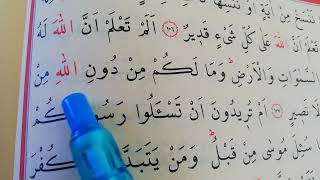 نَنْسَخْ مِنْ اٰيَةٍ اَوْ نُنْسِهَا
تَعْلَمْ اَنَّ اللّٰهَ عَلٰى كُلِّ شَىْءٍ قَدٖيرٌ ﴿١٠٦﴾ اَلَمْ تَعْلَمْ اَنَّ اللّٰهَ لَهُ
السَّمٰوَاتِ وَالْاَرْضِ وَمَا لَكُمْ مِنْ دُونِ اللّٰهِ مِنْ
نَصٖيرٍ ﴿١٠٧﴾ اَمْ تُرٖيدُونَ اَنْ تَسْئَلُوا رَسُولَكُمْ
سُئِلَ مُوسٰى مِنْ قَبْلُ وَمَنْ يَتَبَدَّلِ الْكُفْرَ